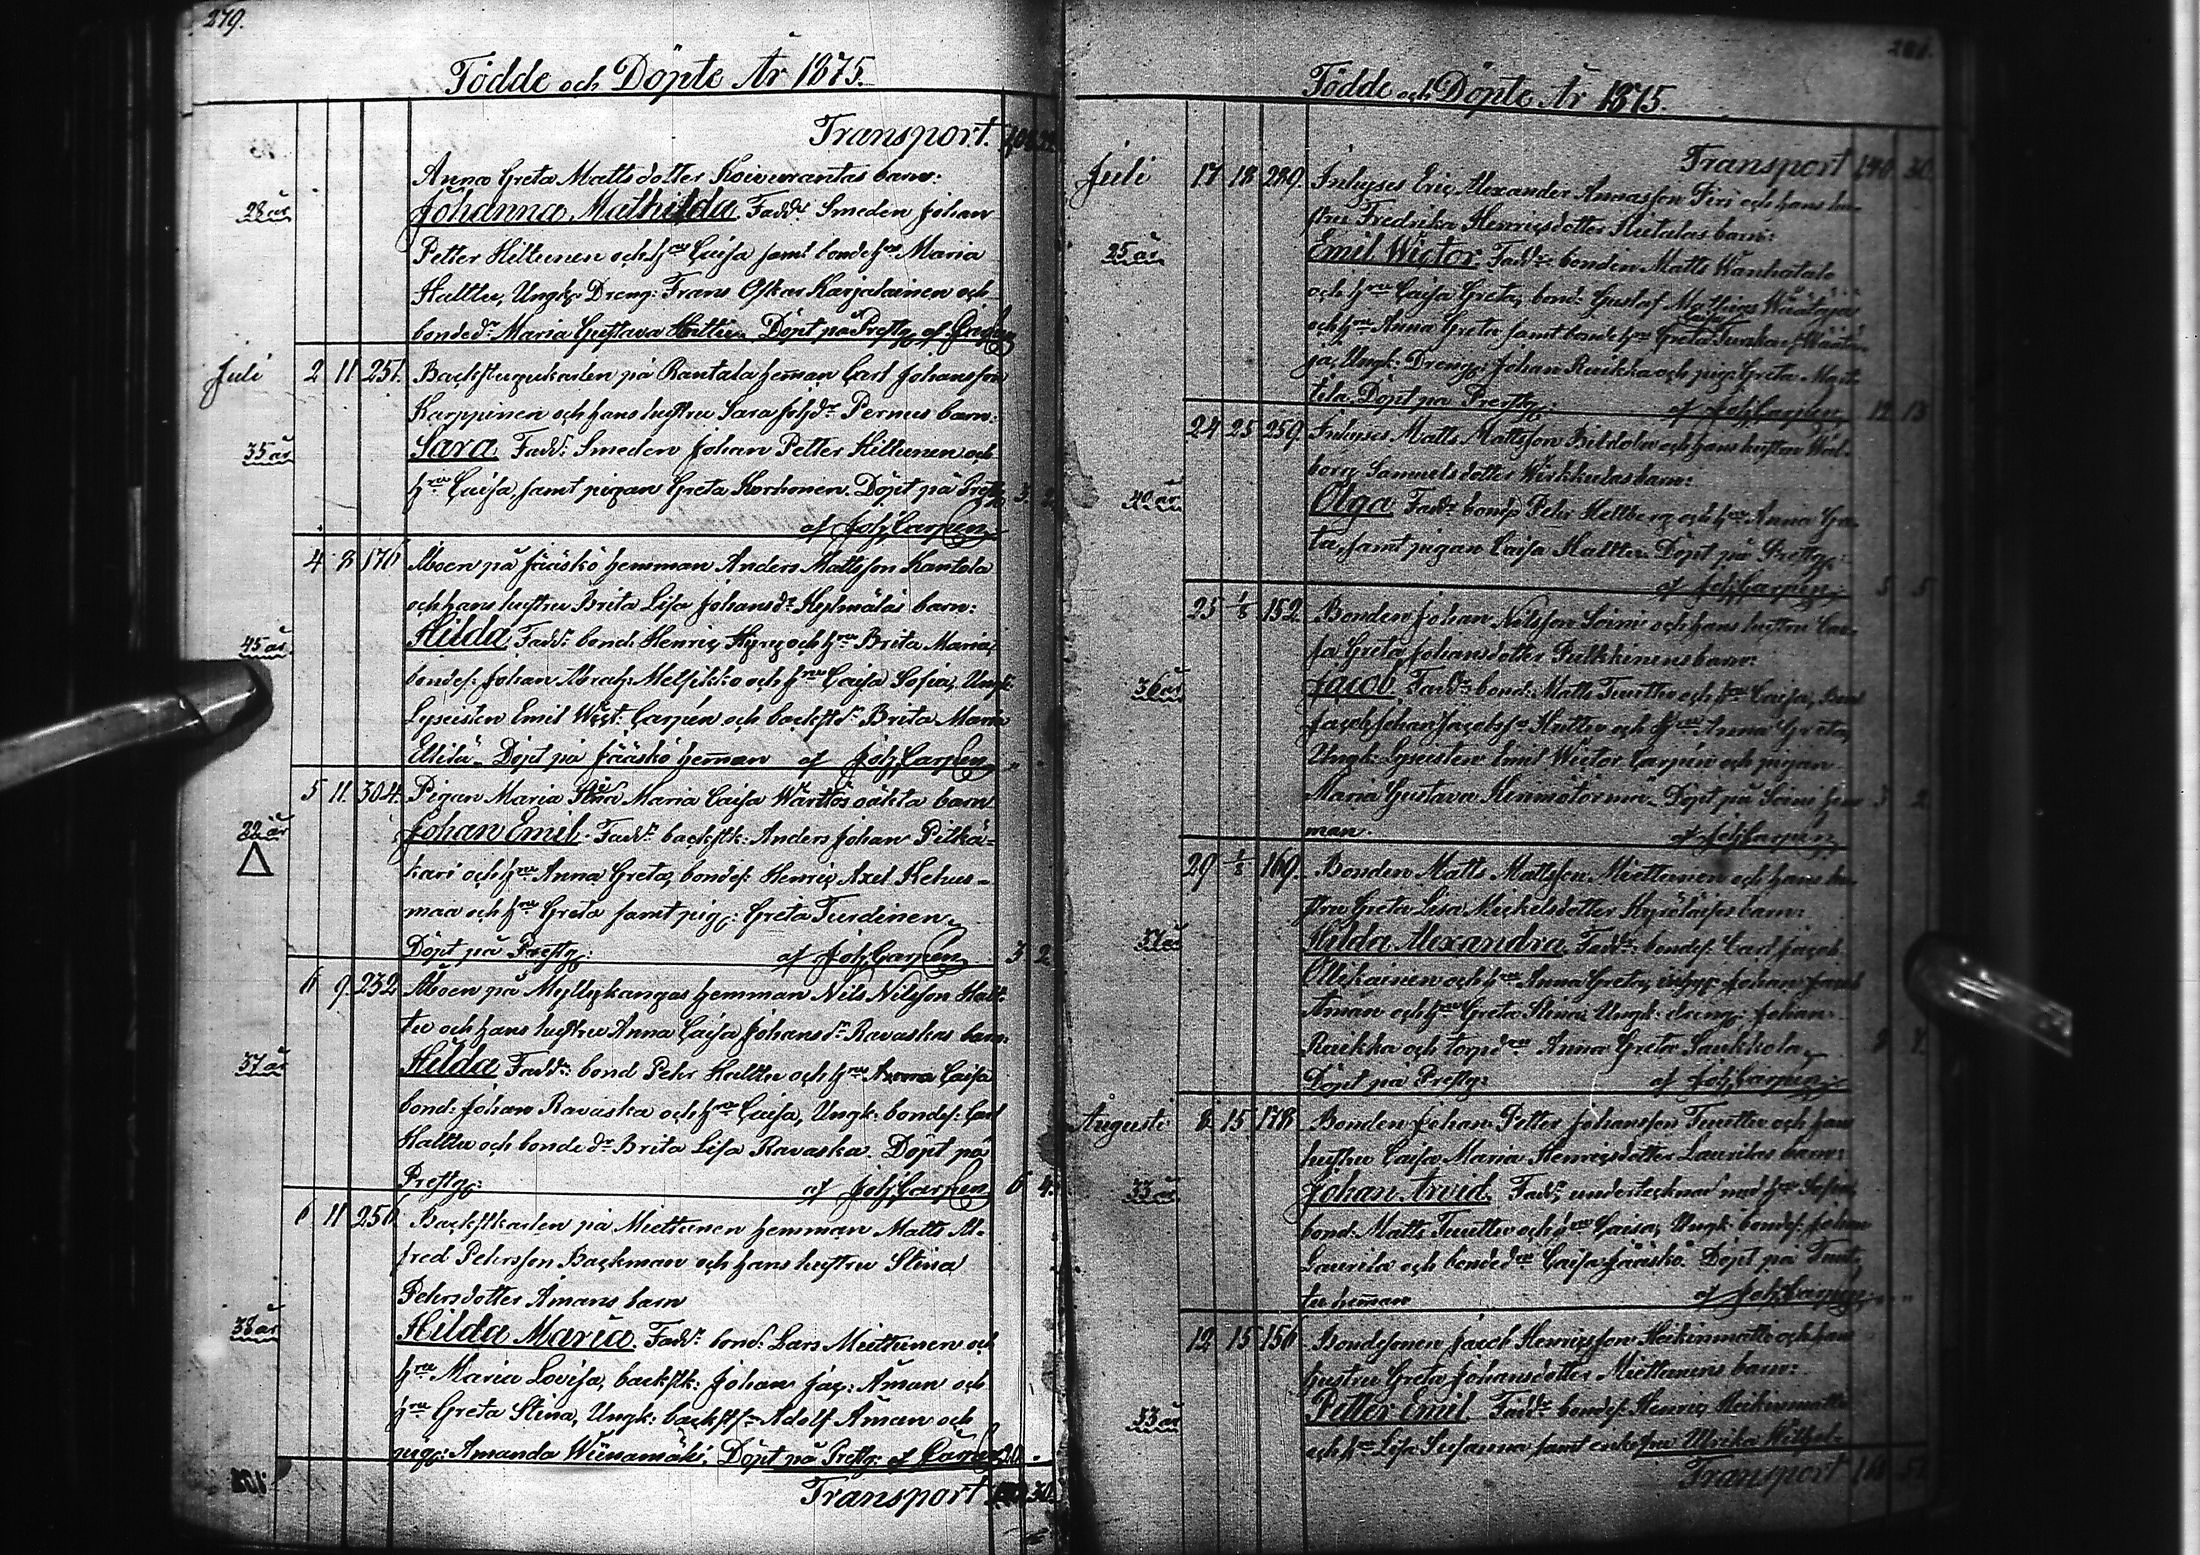 279.
Födde och Döpte År 1875.
Transport.
Anna Greta Matts dotter Koivurantas barn:
28 år Johanna Mathilda. Fadd: Smeden Johan
Petter Hiltunen och hru Caisa samt bondehru Maria
Halttu, Ungk. Dreng: Frans Oskar Karjalainen och
bonded: Maria Gustava Halttu. Döpt på Prestg. af
Juli 2 11 251. Backstugukarlen på Rantala heman Carl Johansson
Karppinen och hans hustru Sara Johdr Pernus barn:
35 år Sara. Fadd: Smeden Johan Petter Hiltunen och
hru Caisa, samt pigan Greta Korhonen. Döpt på Prestg 3 2
af Joh. Carpen
4 8 170 Åboen på Jääskö hemman Anders Mattsson Kantola
och hans hustru Brita Lisa Johansdr barn:
45 år Hilda. Fadd: bond: Henric Hyry och hru Brita Maria,
bondes: Johan Abrah: och hru Caisa Sofia, Ungk:
Lyseisten Emil Wict: Carpén och backstdr Brita Maria
Ellilä. Döpt på Jääskö heman af Joh. Carpen
5 11 304. Pigan Maria Stina Maria Caisa oäkta barn
22 år Johan Emil. Fadd: backstk: Anders Johan Pitkä-
kari och hru Anna Greta, bondes: Henric Axel Kehus-
maa och hru Greta samt pig: Greta Turdinen,
Döpt på Prestg: af Joh. Carpen 3 2
6 9 232 Åboen på Myllykangas hemman Nils Nilsson Halt-
tu och hans hustru Anna Caisa Johansdr Ravaskas barn:
37 år Hilda. Fadd: bond Pehr Halttu och hru Anna Caisa
bond: Johan Ravaska och hru Caisa, Ungk: bondes: Carl
Halttu och bondedr Brita Lisa Ravaska. Döpt på
Prestg: af Joh. Carpen 6 4
6 11 256 Backstkarlen på Miettunen hemman Matts Al-
fred Pehrsson Backman och hans hustru Stina
Pehrsdotter Åmans barn
38 år Hilda Maria. Fadd: bond: Lars Miettunen och
hru Maria Lovisa, backstk: Johan Jac: Åman och
hru Greta Stina, Ungk: backsts: Adolf Åman och
pig: Amanda Wiinamäki, Döpt på Prestg: af
Transport 30.
281.
Födde och Döpte År 1875.
Transport 140 30.
Juli 17 18 289. Inhyses Eric Alexander Annasson Piri och hans hu-
stru Fredrika Henricsdotter Hietalas barn:
25 år Emil Wictor. Fadd: bonden Matts Wanhatalo
och hru Caisa Greta, bond: Gustaf Mathias Wäätäjä
och hru Anna Greta samt bondehru Greta Wäätä-
jä, Ungk: Dreng: Johan Raikka och pig: Greta Mat-
tila. Döpt på Prestg: af Joh. Carpen 12 13
24 25 259. Inhyses Matts Mattsson och hans hustru Wal-
borg Samuelsdotter Wirkkulas barn:
40 år Olga. Fadd: bond: Pehr Hellberg och hru Anna Gre-
ta, samt pigan Caisa Halttu. Döpt på Prestg:
af Joh. Carpen 5 5
25 1/8 152. Bonden Johan Nilsson Soini och hans hustru Cai-
sa Greta Johansdotter Pulkkinens barn:
36 år Jacob. Fadd: bond: Matts Tuuttu och hru Caisa,
Jacob Johan Jacobss: Huttu och hru Anna Greta,
Ungk: Lyseisten Emil Wictor Carpén och pigan
Maria Gustava Kinnistörmä. Döpt på Soini hem 3 2
man. af Joh. Carpen
29 1/8 169. Bonden Matts Mattsson Miettunen och hans hu-
stru Greta Lisa Mickelsdotter barn:
37 år Hilda Alexandra. Fadd: bondes: Carl Jacob
Ollikainen och hru Anna Greta, inhys: Johan Jacob
Åman och hru Greta Stina, Ungk: dreng: Johan
Raikka och Anna Greta Saukkola,
Döpt på Prestg: af Joh. Carpen
Augusti 8 15 178 Bonden Johan Petter Johansson Tuuttu och hans
hustru Caisa Maria Henricsdotter Laurilas barn:
33 år Johan Arvid. Fadd: undertecknad med hru Sofia,
bond: Matts Tuuttu och hru Caisa, Ungk: bondes: Johan
Laurila och bondedr Caisa Jääskö. Döpt på Tuut-
tu heman af Joh. Carpen
12 15 156 Bondesonen Jacob Henricsson Heikinmatti och hans
hustru Greta Johansdotter Miettunens barn:
33 år Petter Emil. Fadd: bondes: Henric Heikinmatti
och hru Lisa Susanna samt enkefru Ulrika
Transport